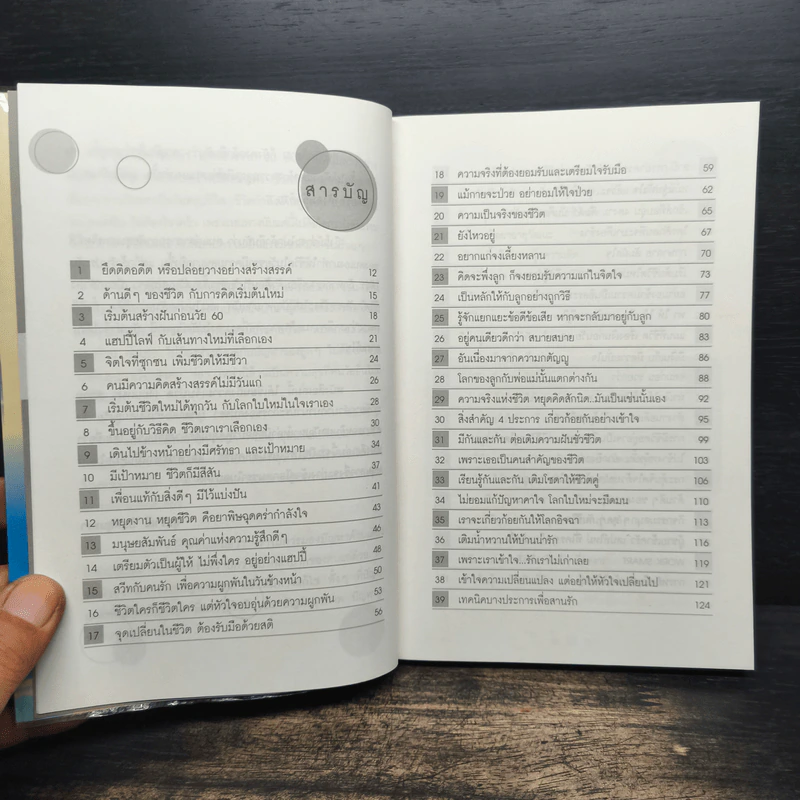 สารบัญ
1 ยึดติดอดีต หรือปล่อยวางอย่างสร้างสรรค์ 12
2 ด้านดีๆ ของชีวิต กับการคิดเริ่มต้นใหม่ 15
3 เริ่มต้นสร้างฝันก่อนวัย 60 18
4 แฮปปี้ไลฟ์ กับเส้นทางใหม่ที่เลือกเอง 21
5 จิตใจที่ซุกซน เพิ่มชีวิตให้มีชีวา 24
6 คนมีความคิดสร้างสรรค์ไม่มีวันแก่ 26
7 เริ่มต้นชีวิตใหม่ได้ทุกวัน กับโลกใบใหม่ในใจเราเอง 28
8 ขึ้นอยู่กับวิธีคิด ชีวิตเราเราเลือกเอง 30
9 เดินไปข้างหน้าอย่างมีศรัทธา และเป้าหมาย 34
10 มีเป้าหมาย ชีวิตก็มีสีสัน 37
11 เพื่อนแท้กับสิ่งดีๆ มีไว้แบ่งปัน 41
12 หยุดงาน หยุดชีวิต คือยาพิษฉุดคร่ากำลังใจ 43
13 มนุษยสัมพันธ์ คุณค่าแห่งความรู้สึกดีๆ 46
14 เตรียมตัวเป็นผู้ให้ ไม่พึ่งใคร อยู่อย่างแฮปปี้ 48
15 สวีทกับคนรัก เพื่อความผูกพันในวันข้างหน้า 50
16 ชีวิตใครก็ชีวิตใคร แต่หัวใจอบอุ่นด้วยความผูกพัน 53
17 จุดเปลี่ยนในชีวิต ต้องรับมือด้วยสติ 56
18 ความจริงที่ต้องยอมรับและเตรียมใจรับมือ 59
19 แม้กายจะป่วย อย่ายอมให้ใจป่วย 62
20 ความเป็นจริงของชีวิต 65
21 ยังไหวอยู่ 67
22 อยากแก่จงเลี้ยงหลาน 70
23 คิดจะพึ่งลูก ก็จงยอมรับความแก่ในจิตใจ 73
24 เป็นหลักให้กับลูกอย่างถูกวิธี 77
25 รู้จักแยกแยะข้อดีข้อเสีย หากจะกลับมาอยู่กับลูก 80
26 อยู่คนเดียวดีกว่า สบายสบาย 83
27 อันเนื่องมาจากความกตัญญู 86
28 โลกของลูกกับพ่อแม่นั้นแตกต่างกัน 88
29 ความจริงแห่งชีวิต หยุดคิดสักนิด..มันเป็นเช่นนั้นเอง 92
30 สิ่งสำคัญ 4 ประการ เกี่ยวก้อยกันอย่างเข้าใจ 95
31 มีกันและกัน ต่อเติมความฝันชั่วชีวิต 99
32 เพราะเธอเป็นคนสำคัญของชีวิต 103
33 เรียนรู้กันและกัน เติมโซดาให้ชีวิตคู่ 106
34 ไม่ยอมแก้ปัญหาคาใจ โลกใบใหม่จะมืดมน 110
35 เราจะเกี่ยวก้อยกันให้โลกอิจฉา 113
36 เติมน้ำหวานให้บ้านน่ารัก 116
37 เพราะเราเข้าใจ...รักเราไม่เก่าเลย 119
38 เข้าใจความเปลี่ยนแปลง แต่อย่าให้หัวใจเปลี่ยนไป 121
39 เทคนิคบางประการเพื่อสานรัก 124